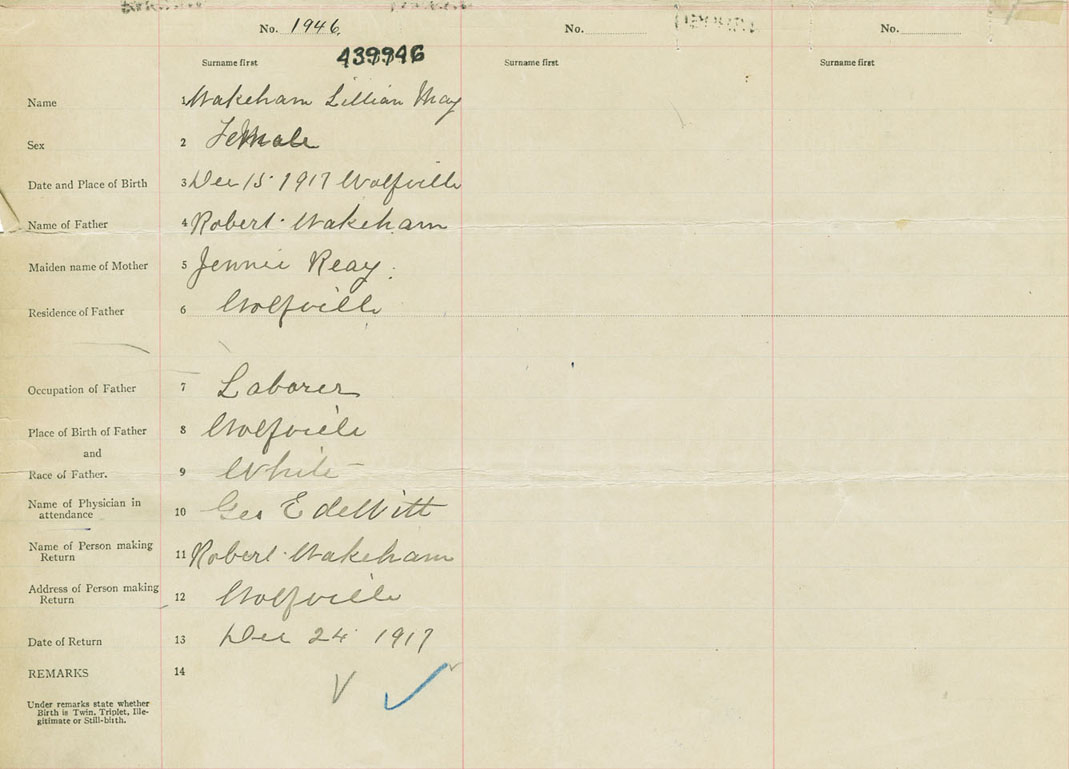 No. 1946. No. No.
439946
Surname first Surname first Surname first
Name 1 Wakeham Lillian May
Sex 2 Female
Date and Place of Birth 3 Dec 15 1917 Wolfville
Name of Father 4 Robert Wakeham
Maiden name of Mother 5 Jennie Reay.
Residence of Father 6 Wolfville
Occupation of Father 7 Laborer
Place of Birth of Father 8 Wolfville
and
Race of Father. 9 White
Name of Physician in
attendance 10 Geo E deWitt
Name of Person making
Return 11 Robert Wakeham
Address of Person making
Return 12 Wolfville
Date of Return 13 Dec 24 1917
REMARKS 14
Under remarks state whether
Birth is Twin, Triplet, Ille-
gitimate or Still-birth.